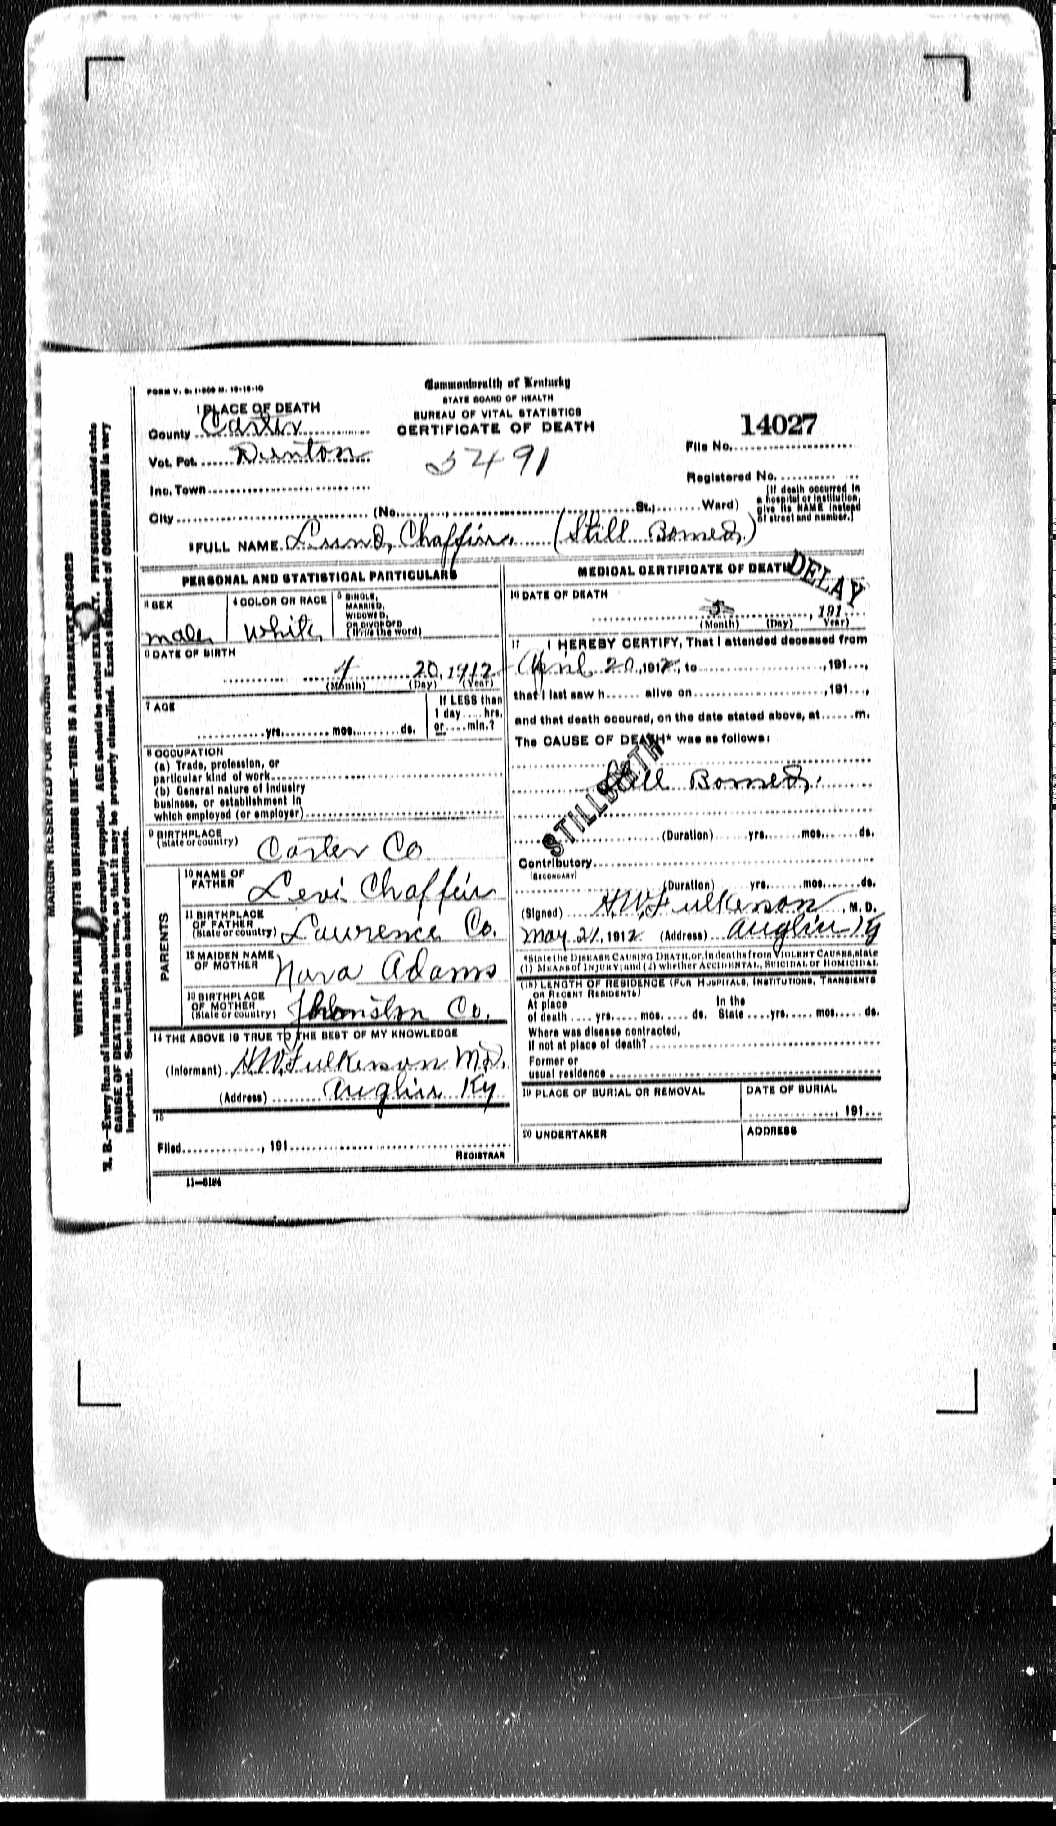 MARGIN RESERVED FOR BINDING
WRITE PLAINLY WITH UNFADING INK—THIS IS A PERMANENT RECORD
N. B.—Every item of information should be carefully supplied. AGE should be stated EXACTLY. PHYSICIANS should state
CAUSE OF DEATH in plain terms, so that it may be properly classified. Exact statement of OCCUPATION is very
important. See instructions on back of certificate.
FORM V. S. 1-
Commonwealth of Kentucky
STATE BOARD OF HEALTH
BUREAU OF VITAL STATISTICS
CERTIFICATE OF DEATH
1 PLACE OF DEATH
County Carter
Vot. Pct. Denton
Inc. Town
City (No. St.; Ward)
5491
14027
File No.
Registered No.
[If death occurred in
a hospital or institution,
give its NAME instead
of street and number.]
2 FULL NAME Chaffin (Still Borned)
PERSONAL AND STATISTICAL PARTICULARS
3 SEX
male
4 COLOR OR RACE
White
5 SINGLE,
MARRIED,
WIDOWED,
OR DIVORCED
(Write the word)
6 DATE OF BIRTH
4 20, 1912
(Month) (Day) (Year)
7 AGE
yrs. mos. ds.
If LESS than
1 day hrs.
or min.?
8 OCCUPATION
(a) Trade, profession, or
particular kind of work
(b) General nature of industry
business, or establishment in
which employed (or employer)
9 BIRTHPLACE
(State or country)
Carter Co
PARENTS
10 NAME OF
FATHER
Levi Chaffin
11 BIRTHPLACE
OF FATHER
(State or country)
Lawrence Co.
12 MAIDEN NAME
OF MOTHER
Nora Adams
13 BIRTHPLACE
OF MOTHER
(State or country)
Co.
14 THE ABOVE IS TRUE TO THE BEST OF MY KNOWLEDGE
(Informant) H.W. Fulkerson M.D.
(Address) Anglin Ky
15
Filed , 191
REGISTRAR
11—
MEDICAL CERTIFICATE OF DEATH
DELAY
16 DATE OF DEATH
5 , 191
(Month) (Day) Year)
17 I HEREBY CERTIFY, That I attended deceased from
April 20, 1912, to , 191 ,
that I last saw h alive on , 191 ,
and that death occured, on the date stated above, at m.
The CAUSE OF DEATH* was as follows:
Still Borned.
STILLBIRTH
(Duration) yrs. mos. ds.
Contributory
(SECONDARY)
(Duration) yrs. mos. ds.
(Signed) H.W. Fulkerson, M. D.
May 21, 1912 (Address) Anglin Ky
*State the DISEASE CAUSING DEATH, or, in deaths from VIOLENT CAUSES, state
(1) MEANS OF INJURY; and (2) whether ACCIDENTAL, SUICIDAL or HOMICIDAL
(18) LENGTH OF RESIDENCE (FOR HOSPITALS, INSTITUTIONS, TRANSIENTS
OR RECENT RESIDENTS)
At place In the
of death yrs. mos. ds. State yrs. mos. ds.
Where was disease contracted,
if not at place of death?
Former or
usual residence
19 PLACE OF BURIAL OR REMOVAL
DATE OF BURIAL
, 191
20 UNDERTAKER
ADDRESS